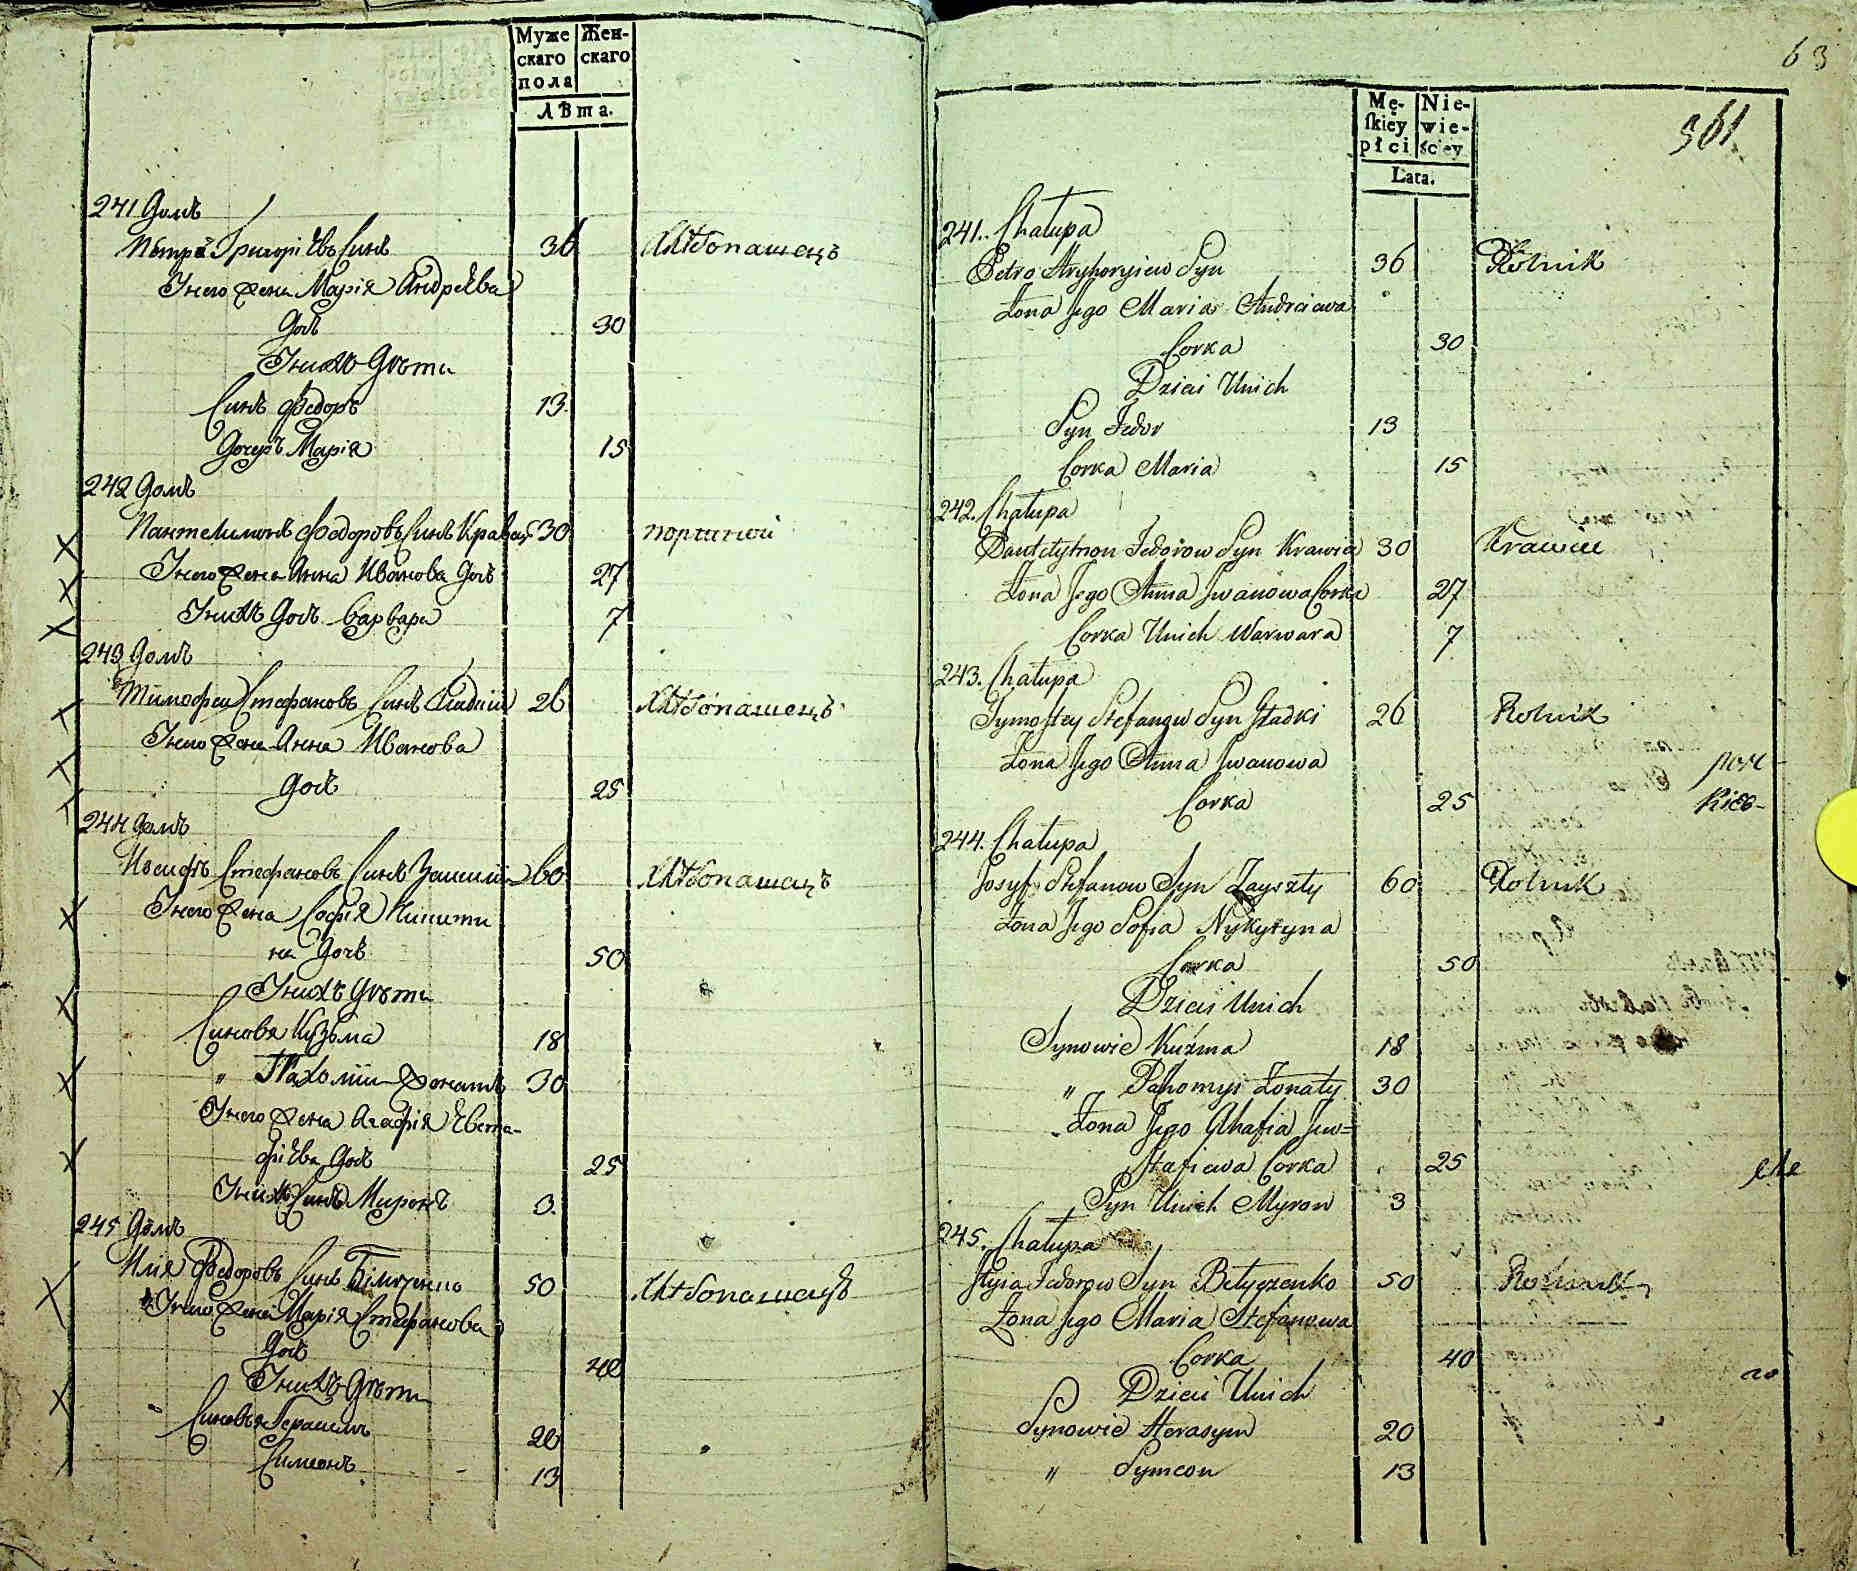 Муже
скаго
пола
Жен-
скаго
лѣта.
241 Домъ
Петръ Григоріевъ Синъ 36 Хлѣбопашецъ
Унего Жена Марія Андреева
Доч 30
Унихъ Дѣти
Синъ Федоръ 13
Дочерь Марія 15
242 Домъ
Пантелимонъ Федоровъ Синъ Кравец 30 портной
Унего Жена Анна Иванова Доч 27
Унихъ Доч Варвара 7
243 Домъ
Тимофей Стефановъ Синъ 26 Хлѣбопашецъ
Унего Жена Анна Иванова
Доч 25
244 Домъ
Иосифъ Стефановъ Синъ 60 Хлѣбопашецъ
Унего Жена Софія Никити
на Доч 50
Унихъ Дѣти
Синовя Кузьма 18
" Пахомій Жонатъ 30
Унего Жена Агафія Евста-
фіева Доч 25
Унихъ Синъ Миронъ 3.
245 Домъ
Илія Федоровъ Синъ 50 Хлѣбопашецъ
Унего Жена Марія Стефанова
Доч 40
Унихъ Дѣти
Синовья Герасимъ 20
Симеонъ 13
63
361
Mę-
skiey
płci
Nie-
wie-
ściey
Lata.
241. Chałupa
Petro Hryhoryiew Syn 36 Rolnik
Żona Jego Maria Andreiewa
Corka 30
Dzieci Unich
Syn Fedor 13
Corka Maria 15
242. Chałupa
Pantełymon Fedorow Syn Krawiec 30 Krawiec
Żona Jego Anna Iwanowa Corka 27
Corka Unich Warwara 7
243. Chałupa
Tymofiey Stefanow Syn Hładki 26 Rolnik
Żona Jego Anna Iwanowa
Corka 25
244. Chałupa
Josyf Stefanow Syn Zayszły 60 Rolnik
Żona Jego Sofia Nykytyna
Corka 50
Dzieci Unich
Synowie Kuźma 18
" Pahomyi Żonaty 30
Żona Jego Ahafia Jew=
stafiewa Corka 25
Syn Unich Myron 3
245. Chałupa
Iłyia Fedorow Syn Biłyczenko 50 Rolnik
Żona Jego Maria Stefanowa
Corka 40
Dzieci Unich
Synowie Herasym 20
" Symeon 13